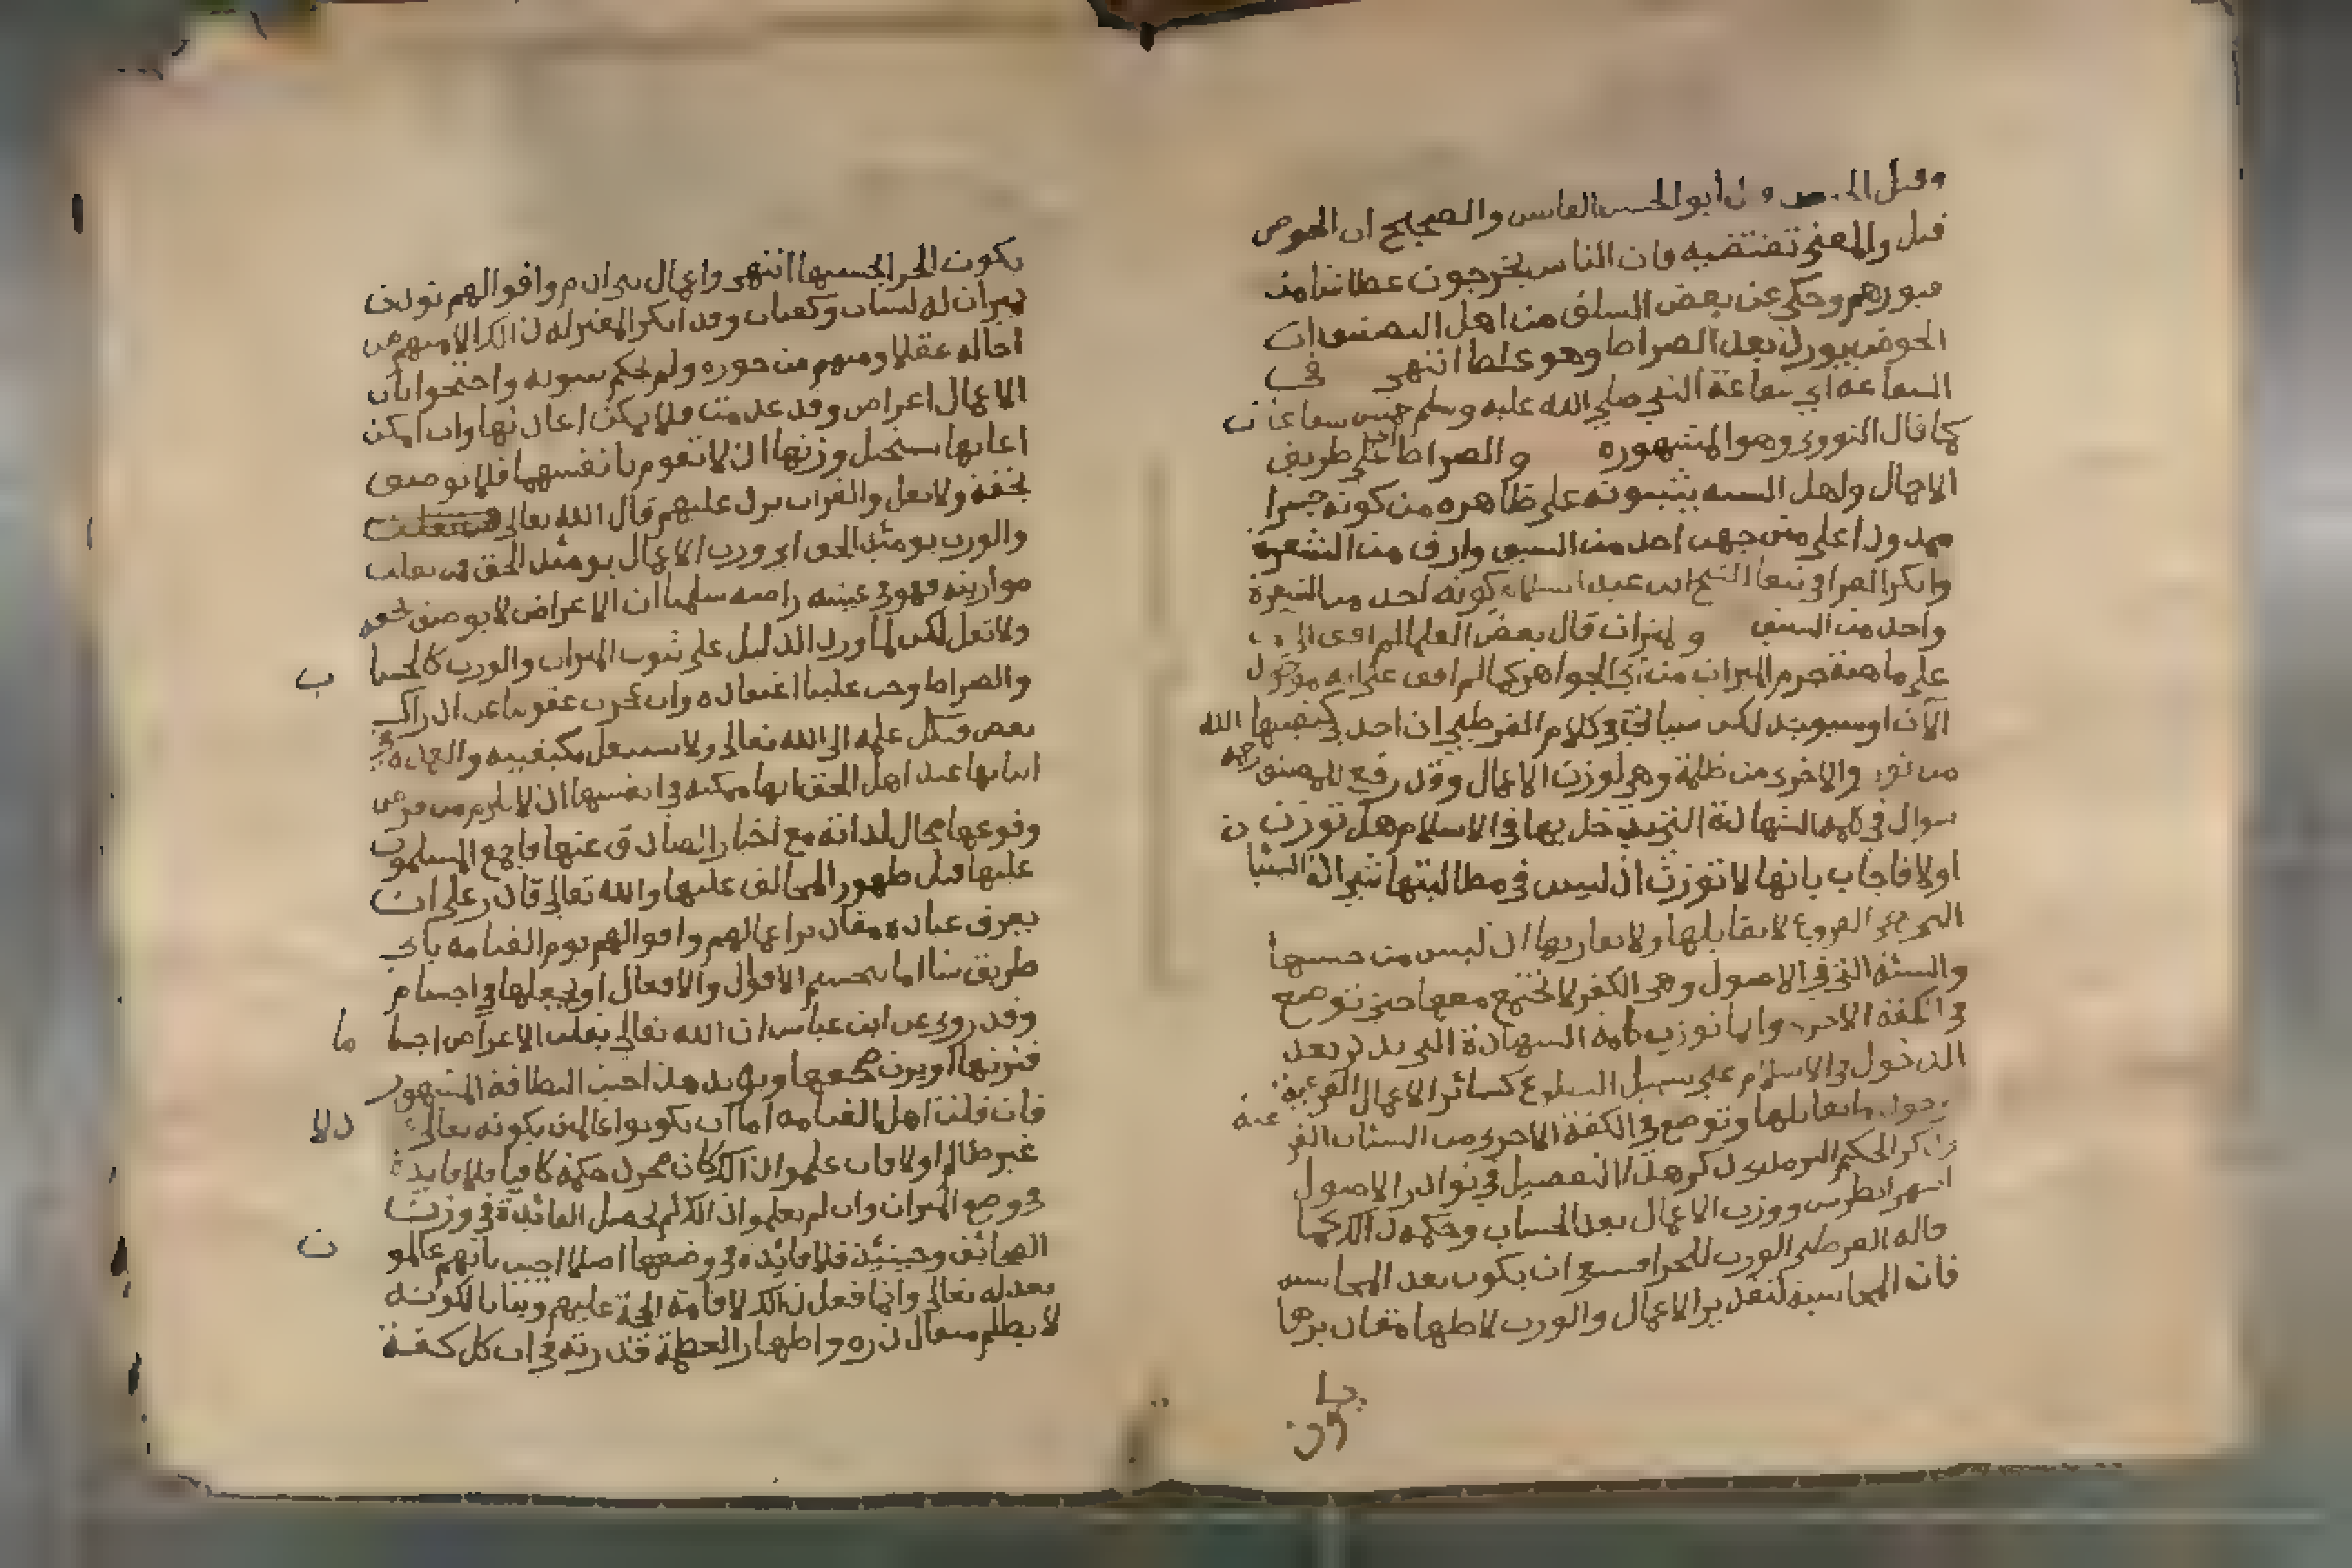 وقيل الحوض قال أبو الحسن القابسي والصحيح ان الحوض
قبل والمعنى تقتضيه فان الناس يخرجون عطاشا من
قبورهم وحكى عن بعض السلف من اهل التصنيف ان
الحوض يورد بعد الصراط وهو غلط انتهى في
الشفاعة اي شفاعة النبي صلى الله عليه وسلم خمس شفاعات
كما قال النووي وهو المشهوره والصراط على طريق
الاجمال واهل السنه يثبتونه على ظاهره من كونه جسرا
ممدودا على متن جهنم احد من السيف وارق من الشعرة
وانكر القرافي تبعا للشيخ ابن عبد السلام كونه احد من الشعرة
واحد من السيف والميزان قال بعض العلما لم اقف
على ماهية جرم الميزان من اي الجواهر كما لم اقف على انه موجود
الآن او سيوجد لكن سياتي في كلام القرطبي ان احدى كفتيها
من نور والاخرى من ظلمة وهي لوزن الاعمال وقد رفع للمصنف رحمه الله
سوال في كلمة الشهادة التي يدخل بها في الاسلام هل توزن
اولا فاجاب بانها لا توزن اذ ليس في مطالبتها شي اذ السيئات
التي هي الفروع لا تقابلها ولا تقاربها اذ ليس من جنسها
والسيئة التي في الاصول وهي الكفر لا تجتمع معها حتى توضع
في الكفة الاخرى وانما توزن كلمة الشهادة التي يذكر بعد
الدخول في الاسلام على سبيل التطوع كسائر الاعمال الفرعية
لوجود ما يقابلها وتوضع في الكفة الاخرى من السيئات الفرعية
ذكر الحكيم الترمذي ذكر هذا التفصيل في نوادر الاصول
انتهى ووزن الاعمال بعد الحساب وحكمة ذلك كما
قاله القرطبي الوزن للجزا فينبغي ان يكون بعد المحاسبه
فان المحاسبة لتقدير الاعمال والوزن لاظهار مقاديرها
يكون الجزا بحسبها انتهى واعمال بني ادم واقوالهم توزن
بميزان له لسان وكفتان وقد انكر المعتزله ذلك الا ان منهم من
احاله عقلا ومنهم من جوزه ولم يحكم بثبوته واحتجوا بان
الاعمال اعراض وقد عدمت فلا يمكن اعادتها وان امكن
اعادتها يستحيل وزنها اذ لا تقوم بانفسها فلا توصف
بخفة ولا ثقل والقران يرد عليهم قال الله تعالى
والوزن يومئذ الحق اي وزن الاعمال يومئذ الحق فمن ثقلت
موازينه فهو في عيشه راضيه سلمنا ان الاعراض لا توصف بخفه
ولا ثقل لكن لما ورد الدليل على ثبوت الميزان والوزن كالحساب
والصراط وجب علينا اعتقاده وان عجزت عقولنا عن ادراك
بعض فنكل علمه الى الله تعالى ولا نشتغل بكيفيته والعمدة في
اثباتها عند اهل الحق انها ممكنة في انفسها اذ لا يلزم من فرض
وقوعها محال لذاته مع اخبار الصادق عنها فاجمع المسلمون
عليها قبل ظهور المخالف عليها والله تعالى قادر على ان
يعرف عباده مقادير اعمالهم واقوالهم يوم القيامه باي
طريق شا اما بتجسيم الاقوال والافعال او يجعلها في اجسام
وقد روي عن ابن عباس ان الله تعالى يقلب الاعراض اجساما
فتزنها او يوزن صحفها ويؤيد هذا حديث البطاقة المشهور
فان قلت اهل القيامه اما ان يكونوا عالمين بكونه تعالى
غير ظالم اولا فان علموا ذلك كان مجرد حكمه كافيا فلا فايدة
في وضع الميزان وان لم يعلموا ذلك لم تحصل الفائدة في وزن
الصحائف وحينئذ فلا فائده في وضعها اصلا اجيب بانهم عالمون
بعدله تعالى وانما فعل ذلك لاقامة الحجة عليهم وبيانا لكونه
لا يظلم مثقال ذره واظهار العظمة قدرته في ان كل كفة